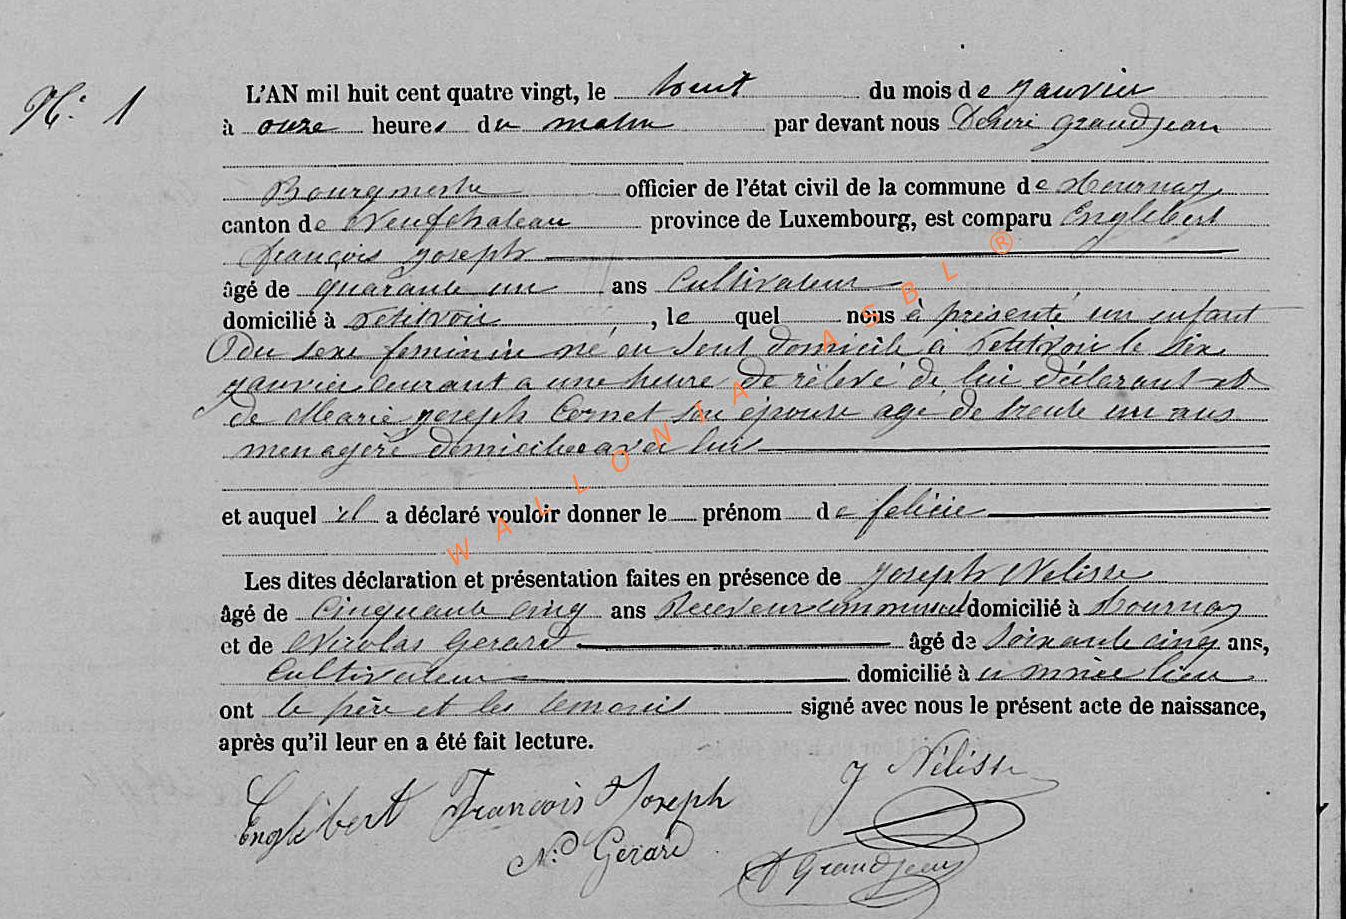 N.° 1
L'AN mil huit cent quatre vingt, le huit du mois de janvier
à onze heures du matin par devant nous Désiré Grandjean
Bourgmestre officier de l'état civil de la commune de Tournay
canton de Neufchateau province de Luxembourg, est comparu Englebert
françois joseph
âgé de quarante un ans Cultivateur
domicilié à petitvoir , le quel nous à présenté un enfant
du sexe feminin né en domicile à Petitvoir le six
janvier courant a une heure de rélevé de lui déclarant et
de Marie joseph Cornet son épouse agé de trente un ans
menagère domiciliée avec lui
et auquel il a déclaré vouloir donner le prénom de felicie
Les dites déclaration et présentation faites en présence de joseph Nelisse
âgé de Cinquante cinq ans Receveur communal domicilié à Tournay
et de Nicolas Gerard âgé de soixante cinq ans,
Cultivateur domicilié à lieu
ont le père et les temoins signé avec nous le présent acte de naissance,
après qu'il leur en a été fait lecture.
J Nélisse
Englebert François Joseph
N. Gerard
D Grandjean
WALLONIA ASBL ®